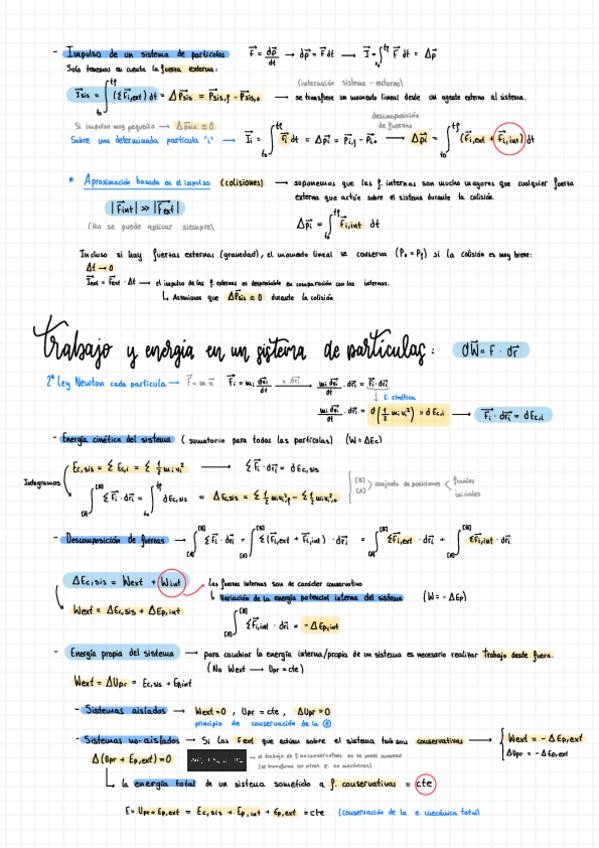 - Impulso de un sistema de partículas F = dp/dt → dp = F dt → I = ∫ F dt = Δp
Solo tenemos en cuenta la fuerza externa:
(interacción sistema - externa)
I sis = ∫ (ΣFi,ext) dt = ΔPsis = Psis,f - Psis,o → se transfiere un momento lineal desde un agente externo al sistema.
Si impulso muy pequeño → ΔPsis ≈ 0
descomposición de fuerzas
Sobre una determinada partícula "i" → Ii = ∫ Fi dt = Δpi = Pi,f - Pi,o → Δpi = ∫ (Fi,ext + Fi,int) dt
* Aproximación basada en el impulso (colisiones) → suponemos que las f. internas son mucho mayores que cualquier fuerza
externa que actúe sobre el sistema durante la colisión.
|Fint| ≫ |Fext|
(No se puede aplicar siempre)
Δpi = ∫ Fi,int dt
Incluso si hay fuerzas externas (gravedad), el momento lineal se conserva (Po = Pf) si la colisión es muy breve:
Δt → 0
Iext = Fext · Δt → el impulso de las f. externas es despreciable en comparación con las internas.
↳ Asumimos que ΔPsis ≈ 0 durante la colisión
Trabajo y energía en un sistema de partículas: dW = F · dr
2ª Ley Newton cada partícula → F = m·a Fi = mi dvi/dt → x dri → mi dvi/dt · dri = Fi · dri
↓ E. cinética
mi dvi/dt · dri = d(½ mi vi²) = dEc,i → Fi · dri = dEc,i
- Energía cinética del sistema (sumatorio para todas las partículas) (W = ΔEc)
Ec,sis = Σ Ec,i = Σ ½ mi vi² → Σ Fi · dri = dEc,sis
Integramos
∫ ΣFi · dri = ∫ dEc,sis = ΔEc,sis = Σ ½ mi vi,f² - Σ ½ mi vi,o²
[B] [A] > conjunto de posiciones < finales iniciales
- Descomposición de fuerzas → ∫ ΣFi · dri = ∫ Σ(Fi,ext + Fi,int) · dri = ∫ ΣFi,ext · dri + ∫ ΣFi,int · dri
ΔEc,sis = Wext + Wint → Las fuerzas internas son de carácter conservativo
↳ Variación de la energía potencial interna del sistema (W = -ΔEp)
Wext = ΔEc,sis + ΔEp,int
∫ ΣFi,int · dri = -ΔEp,int
- Energía propia del sistema → para cambiar la energía interna/propia de un sistema es necesario realizar trabajo desde fuera.
(No Wext → Upr = cte)
Wext = ΔUpr = Ec,sis + Ep,int
- Sistemas aislados → Wext = 0, Upr = cte, ΔUpr = 0
principio de conservación de la E
- Sistemas no-aislados → Si las Fext que actúan sobre el sistema son conservativas → Wext = -ΔEp,ext
ΔUpr = -ΔEp,ext
Δ(Upr + Ep,ext) = 0
→ el trabajo de f. no conservativas no se puede
(se transforma en otras e. no mecánicas)
↳ la energía total de un sistema sometido a f. conservativas = cte
E = Upr + Ep,ext = Ec,sis + Ep,int + Ep,ext = cte (conservación de la e. mecánica total)